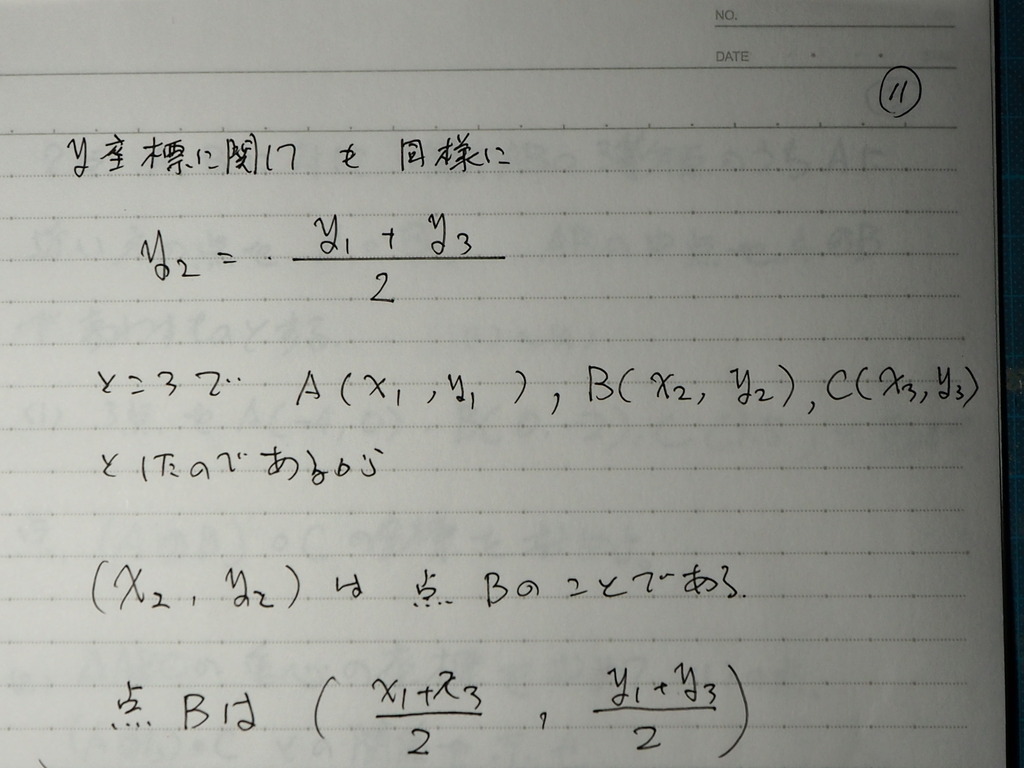 NO.
DATE
⑪
y座標に関しても同様に
y₂ = (y₁ + y₃)/2
ところで A(x₁, y₁), B(x₂, y₂), C(x₃, y₃)
としたのであるから
(x₂, y₂) は 点Bのことである.
点Bは ((x₁+x₃)/2, (y₁+y₃)/2)